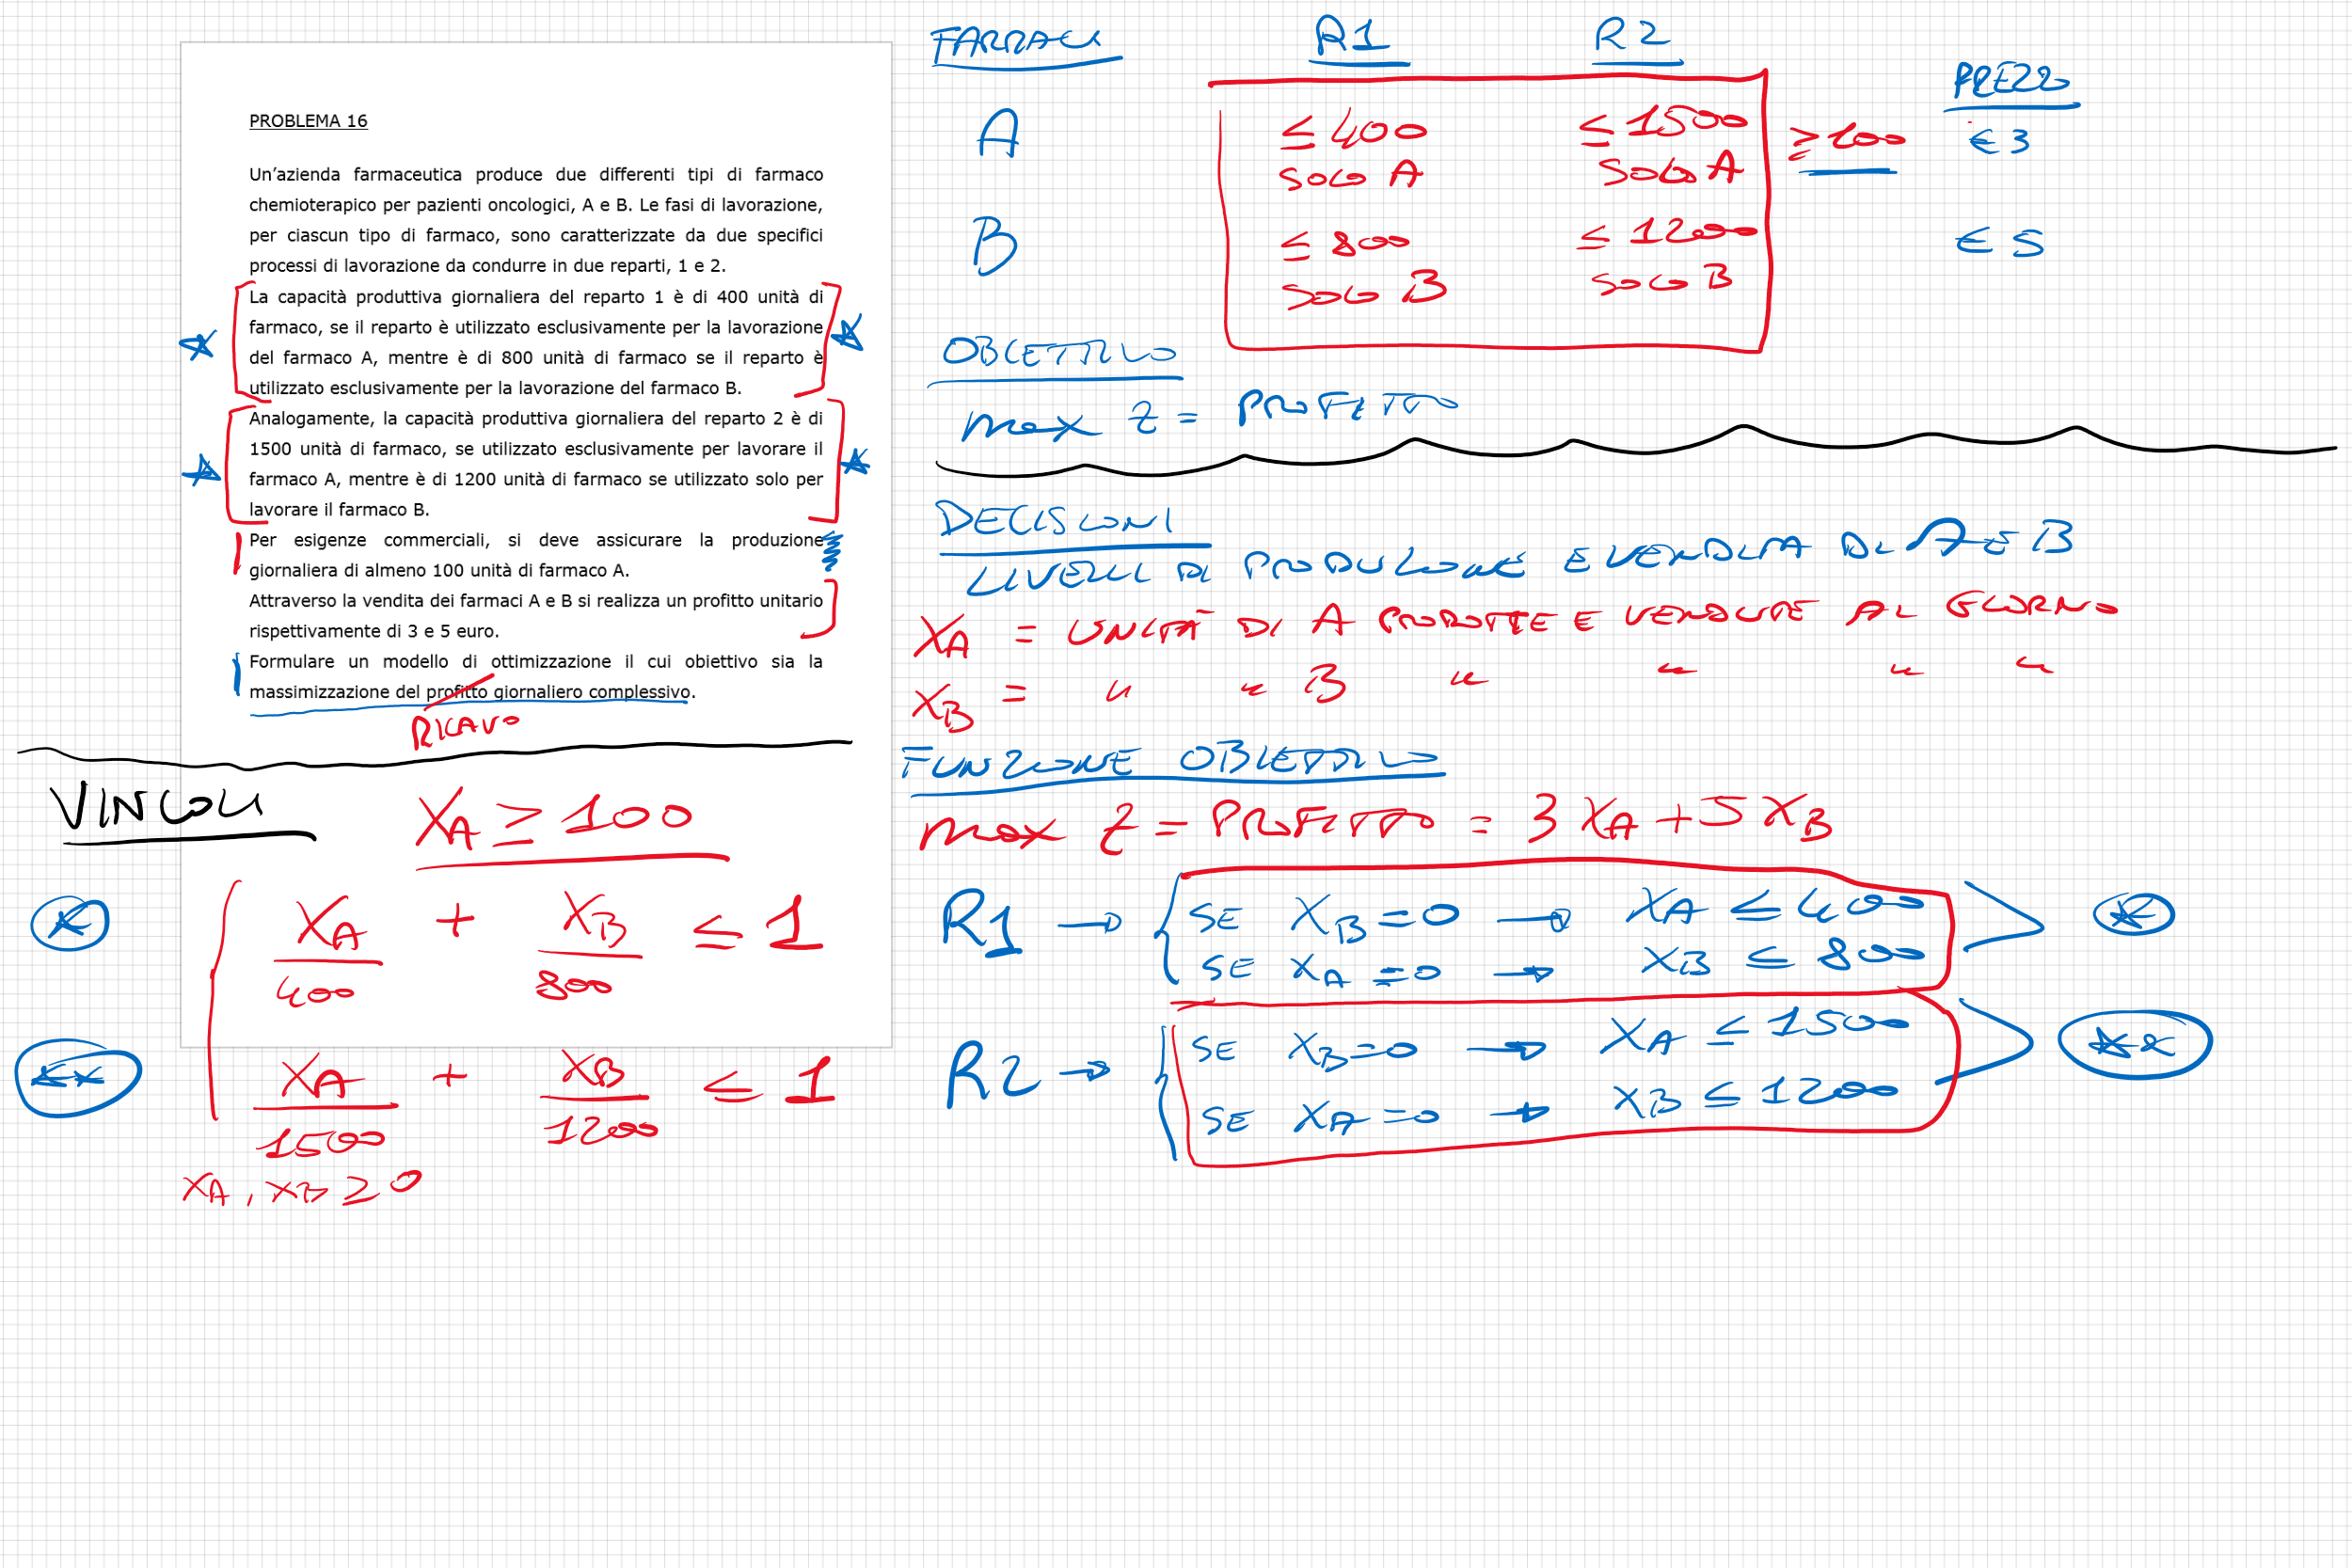 PROBLEMA 16
Un’azienda farmaceutica produce due differenti tipi di farmaco
chemioterapico per pazienti oncologici, A e B. Le fasi di lavorazione,
per ciascun tipo di farmaco, sono caratterizzate da due specifici
processi di lavorazione da condurre in due reparti, 1 e 2.
La capacità produttiva giornaliera del reparto 1 è di 400 unità di
farmaco, se il reparto è utilizzato esclusivamente per la lavorazione
del farmaco A, mentre è di 800 unità di farmaco se il reparto è
utilizzato esclusivamente per la lavorazione del farmaco B.
Analogamente, la capacità produttiva giornaliera del reparto 2 è di
1500 unità di farmaco, se utilizzato esclusivamente per lavorare il
farmaco A, mentre è di 1200 unità di farmaco se utilizzato solo per
lavorare il farmaco B.
Per esigenze commerciali, si deve assicurare la produzione
giornaliera di almeno 100 unità di farmaco A.
Attraverso la vendita dei farmaci A e B si realizza un profitto unitario
rispettivamente di 3 e 5 euro.
Formulare un modello di ottimizzazione il cui obiettivo sia la
massimizzazione del profitto giornaliero complessivo.
RICAVO
VINCOLI
XA ≥ 100
XA/400 + XB/800 ≤ 1
XA/1500 + XB/1200 ≤ 1
XA, XB ≥ 0
FARMACI R1 R2 PREZZO
A ≤ 400 ≤ 1500 ≥ 100 € 3
SOLO A SOLO A
B ≤ 800 ≤ 1200 € 5
SOLO B SOLO B
OBIETTIVO
max Z = PROFITTO
DECISIONI
LIVELLI DI PRODUZIONE E VENDITA DI A E B
XA = UNITÀ DI A PRODOTTE E VENDUTE AL GIORNO
XB = " " B " " " "
FUNZIONE OBIETTIVO
max Z = PROFITTO = 3 XA + 5 XB
R1 → { SE XB = 0 → XA ≤ 400
SE XA = 0 → XB ≤ 800
R2 → { SE XB = 0 → XA ≤ 1500
SE XA = 0 → XB ≤ 1200